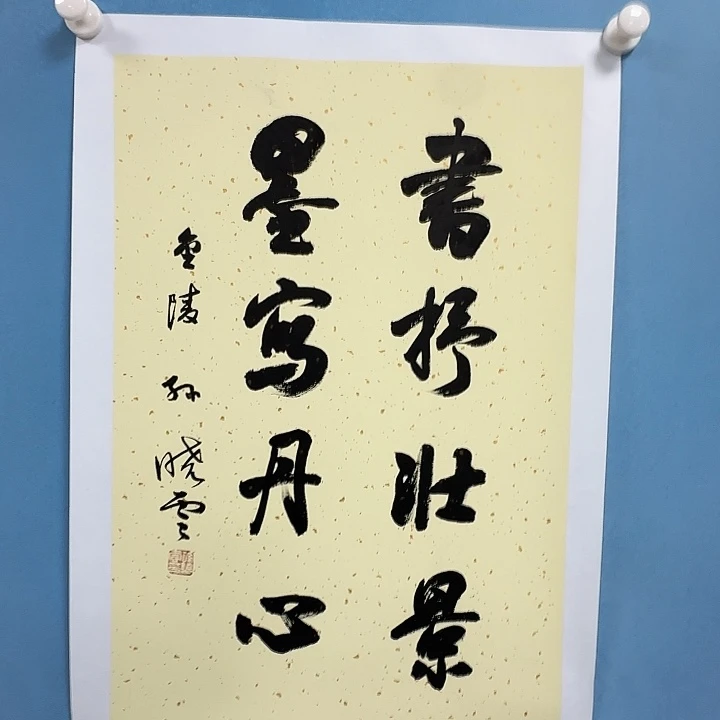 書抒壯景
墨寫丹心
金陵 孙晓雲